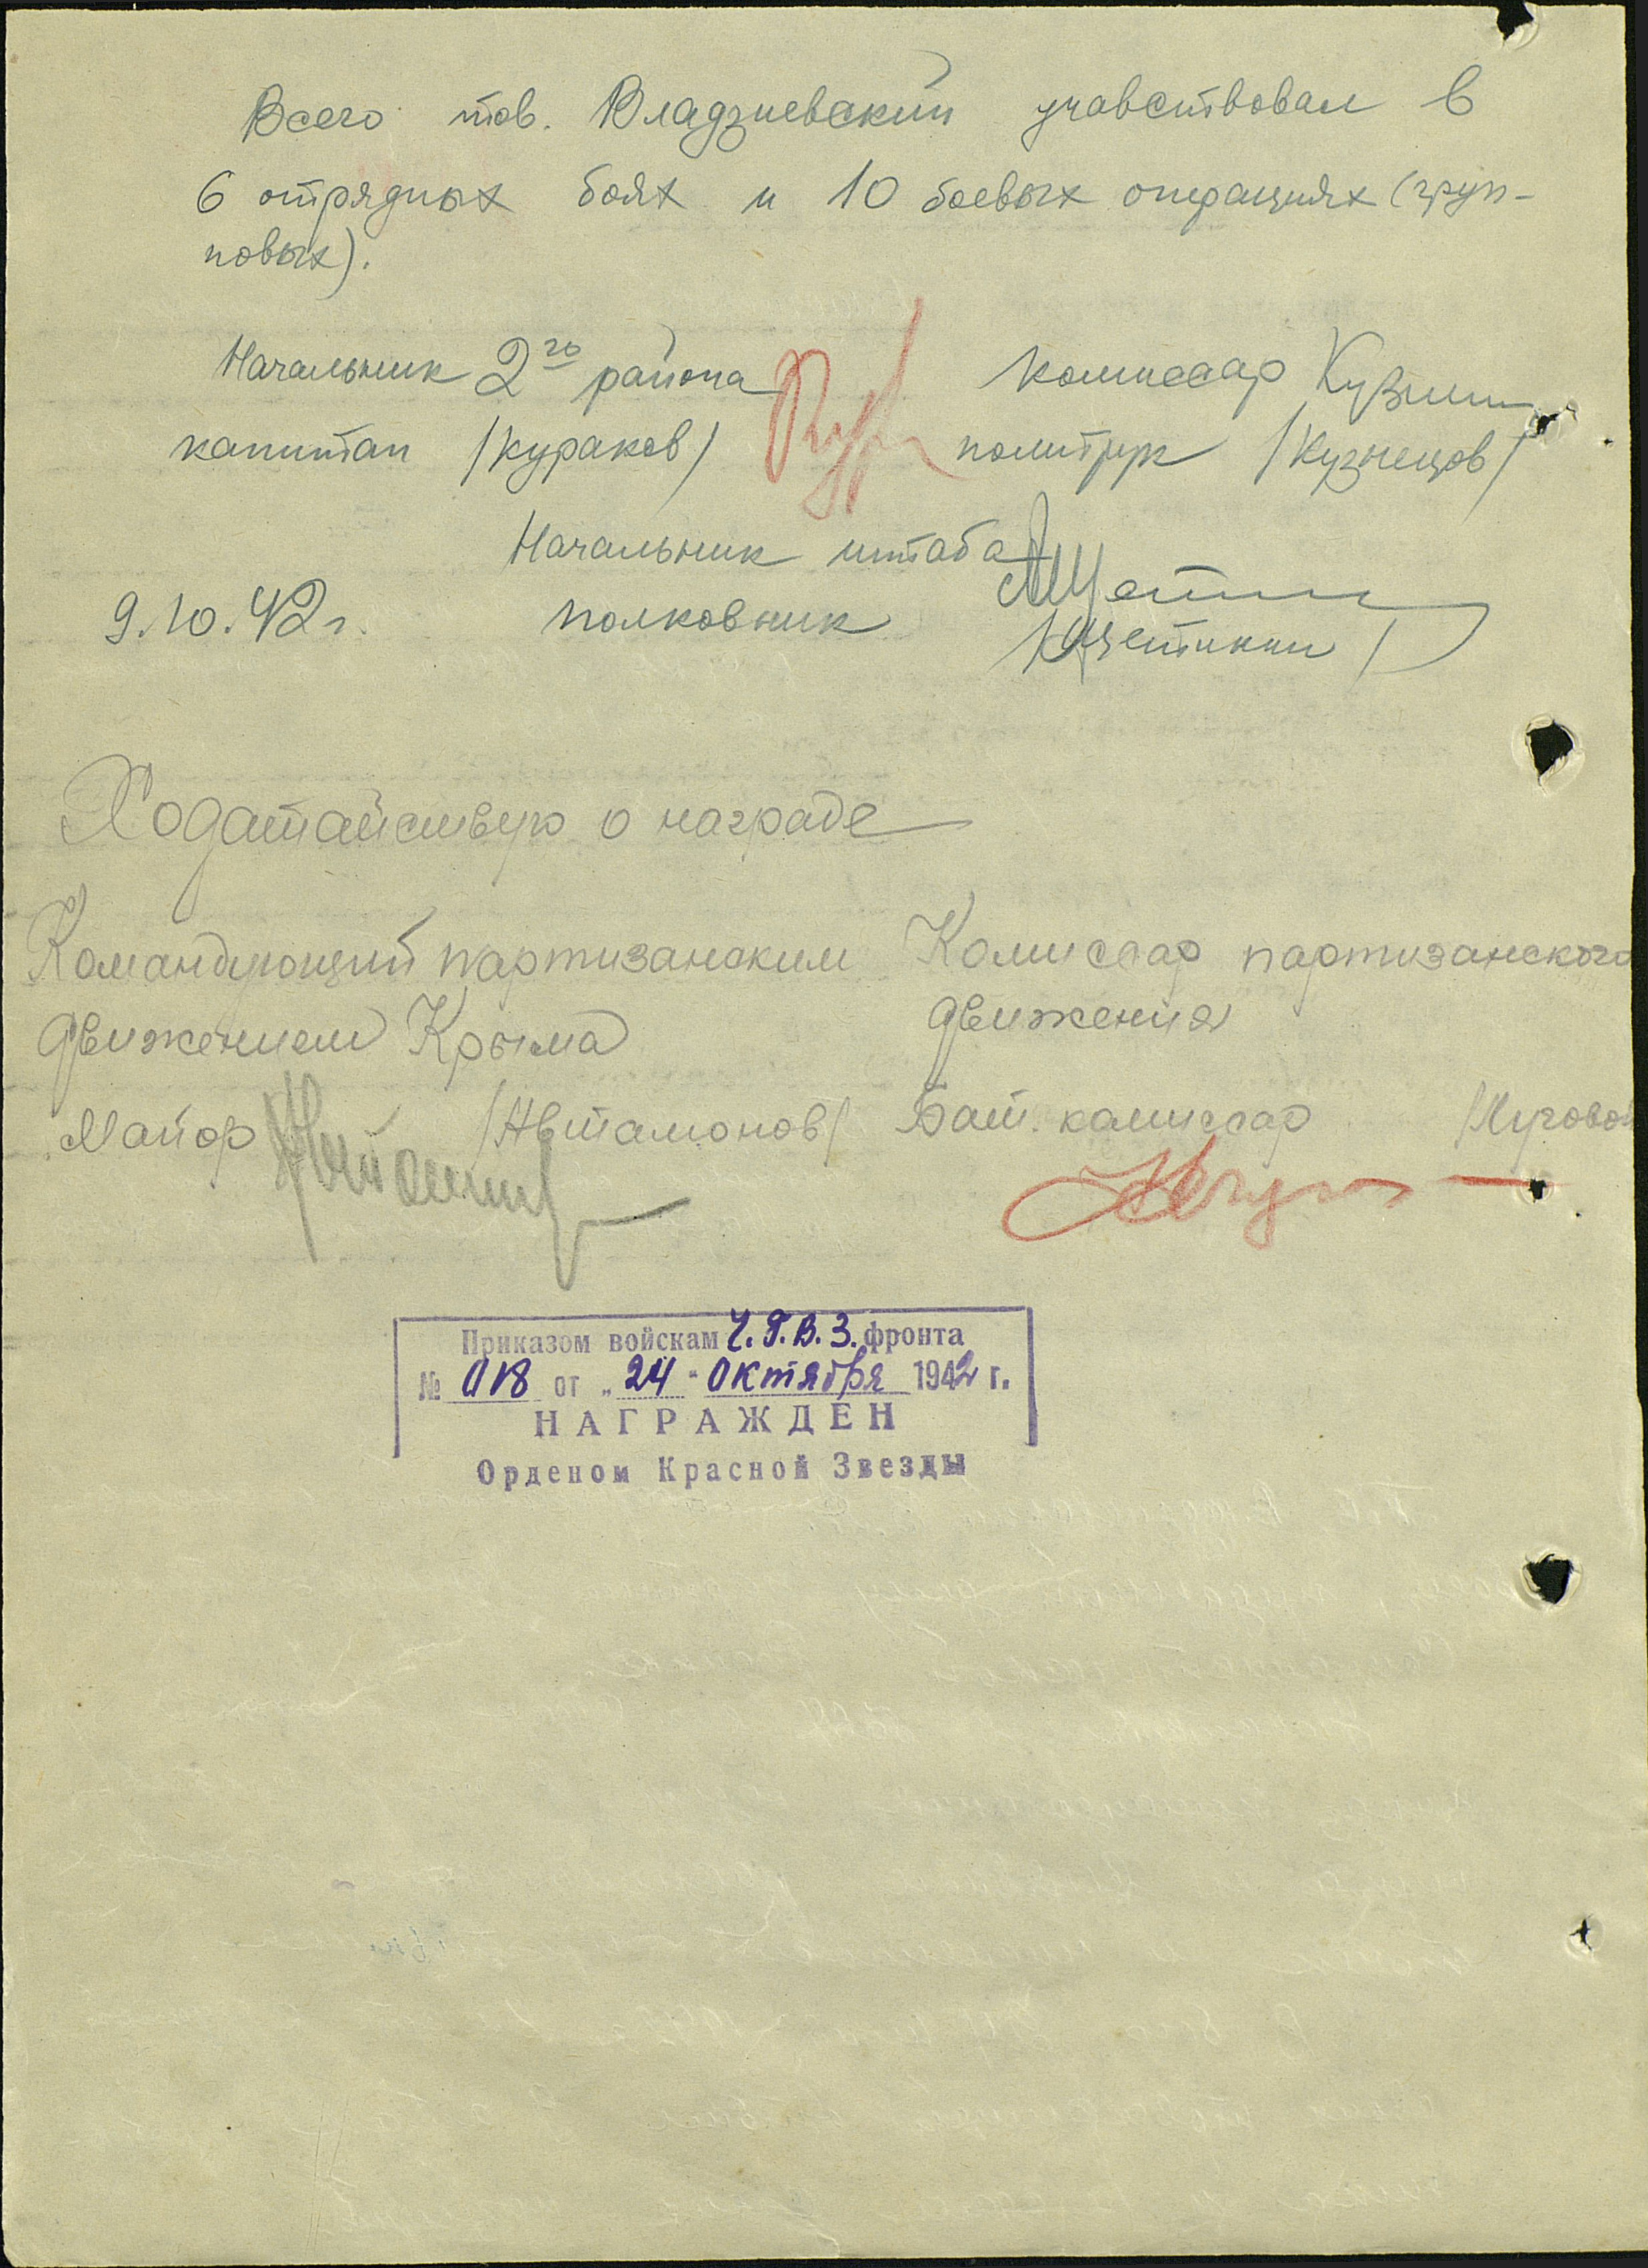 Всего тов. Владзиевский учавствовал в
6 отрядных боях и 10 боевых операциях (груп-
повых).
Начальник 2го района комиссар
капитан /Кураков/ политрук /Кузнецов/
Начальник штаба
9.10.42г. полковник
/Щетинин/
Ходатайствую о награде
Командующий партизанским Комиссар партизанского
движением Крыма движения
Майор /Автамонов/ Бат. комиссар /Луговой
Приказом войскам Ч.Г.В.З. фронта
№ 018 от „24" октября 1942 г.
НАГРАЖДЕН
Орденом Красной Звезды